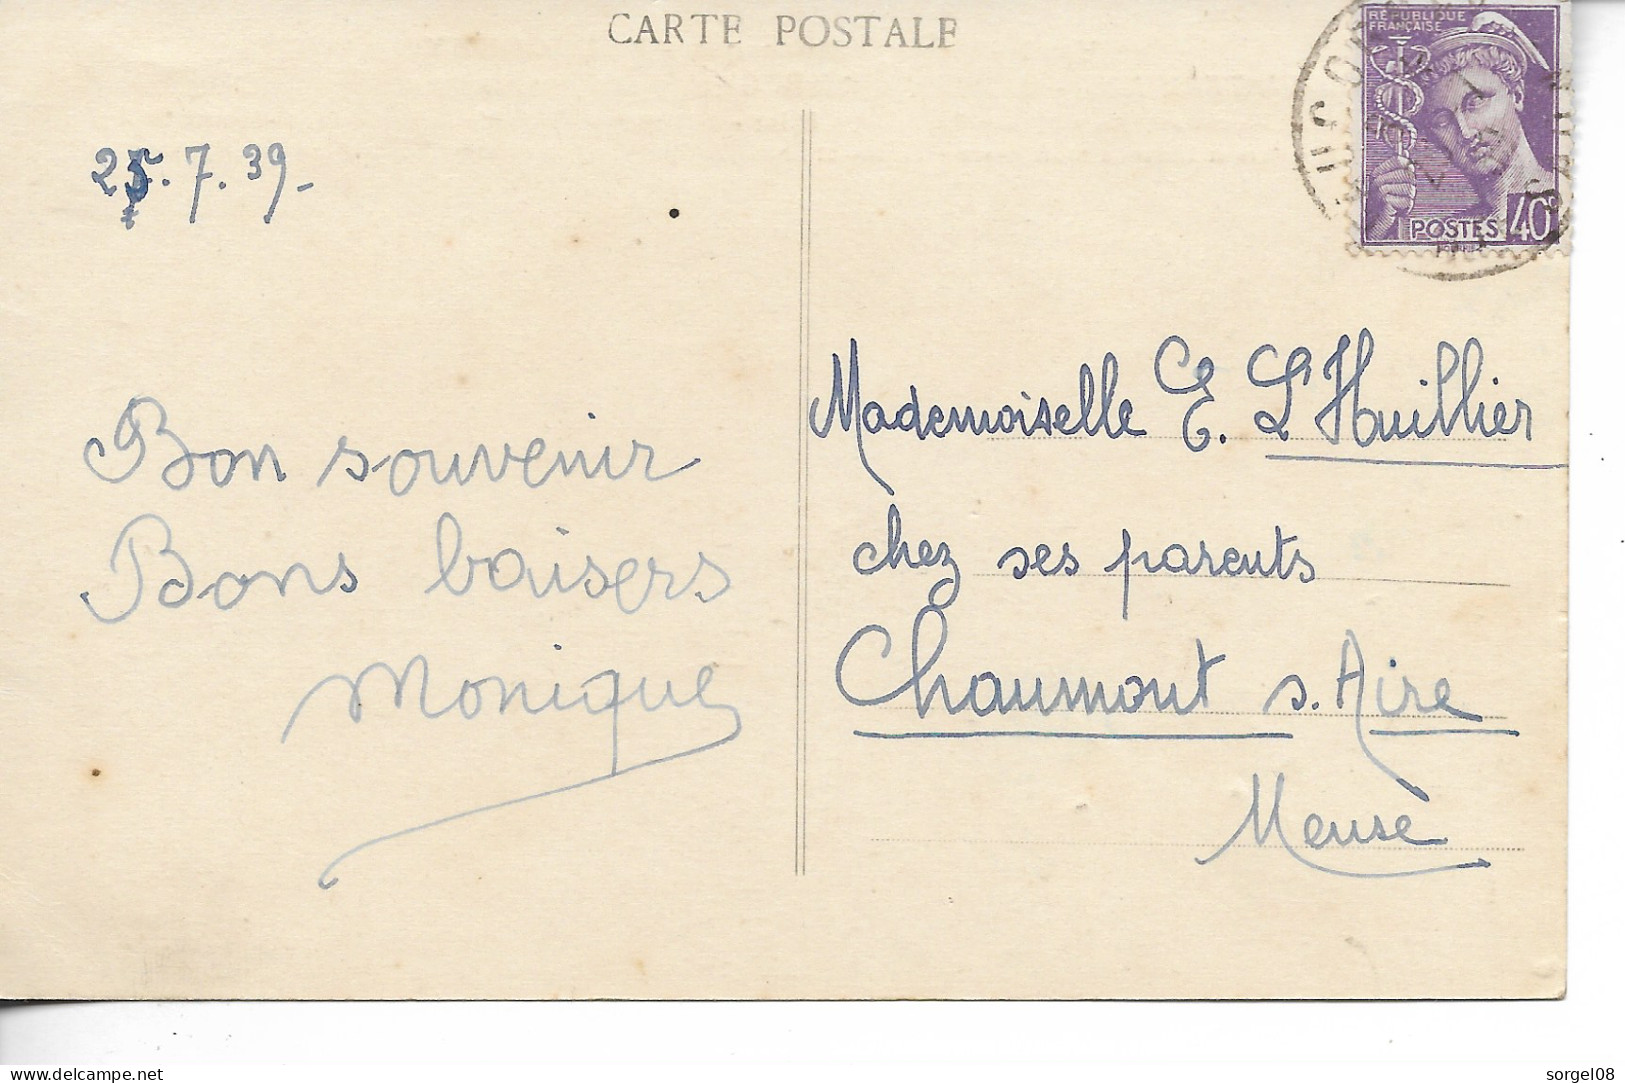 CARTE POSTALE
RÉPUBLIQUE
FRANÇAISE
POSTES 40c
25.7.39-
Bon souvenir
Bons baisers
Monique
Mademoiselle E. L'Huillier
chez ses parents
Chaumont s. Aire
Meuse
www.delcampe.net
sorgel08